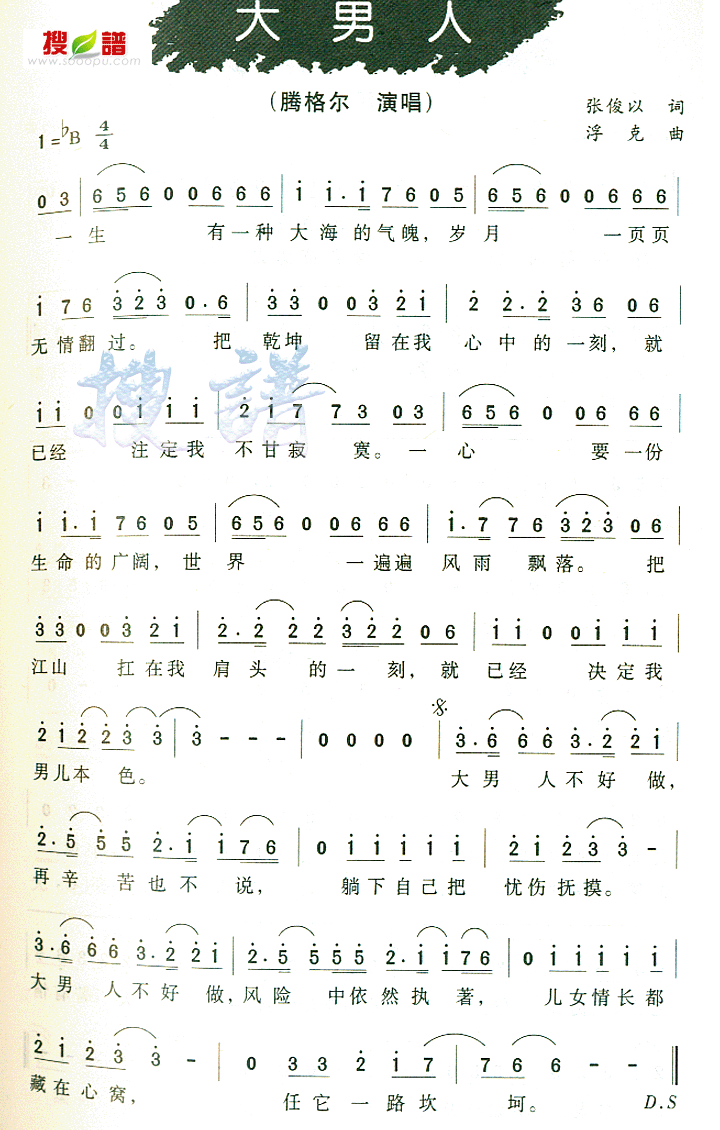 大男人
搜谱
www.sooopu.com
(腾格尔 演唱)
张俊以 词
浮 克 曲
1=♭B 4/4
0 3 | 6 5 6 0 0 6 6 6 | 1 1·1 7 6 0 5 | 6 5 6 0 0 6 6 6 |
一生 有一种 大海的气魄，岁月 一页页
1 7 6 3 2 3 0·6 | 3 3 0 0 3 2 1 | 2 2·2 3 6 0 6 |
无情翻过。 把 乾坤 留在我 心中的一刻，就
1 1 0 0 1 1 1 | 2 1 7 7 3 0 3 | 6 5 6 0 0 6 6 6 |
已经 注定我 不甘寂 寞。一心 要一份
1 1·1 7 6 0 5 | 6 5 6 0 0 6 6 6 | 1·7 7 6 3 2 3 0 6 |
生命的广阔，世界 一遍遍 风雨 飘落。 把
3 3 0 0 3 2 1 | 2·2 2 2 3 2 2 0 6 | 1 1 0 0 1 1 1 |
江山 扛在我 肩头 的一刻，就已经 决定我
2 1 2 2 3 3 | 3 - - - | 0 0 0 0 | 3·6 6 6 3·2 2 1 |
男儿本色。 大男 人不好做，
2·5 5 5 2·1 1 7 6 | 0 1 1 1 1 1 | 2 1 2 3 3 - |
再辛 苦也不 说， 躺下自己把 忧伤抚摸。
3·6 6 6 3·2 2 1 | 2·5 5 5 5 2·1 1 7 6 | 0 1 1 1 1 1 |
大男 人不好 做，风险 中依然执 著， 儿女情长都
2 1 2 3 3 - | 0 3 3 2 1 7 | 7 6 6 - - ||
藏在心窝， 任它一路坎 坷。 D.S